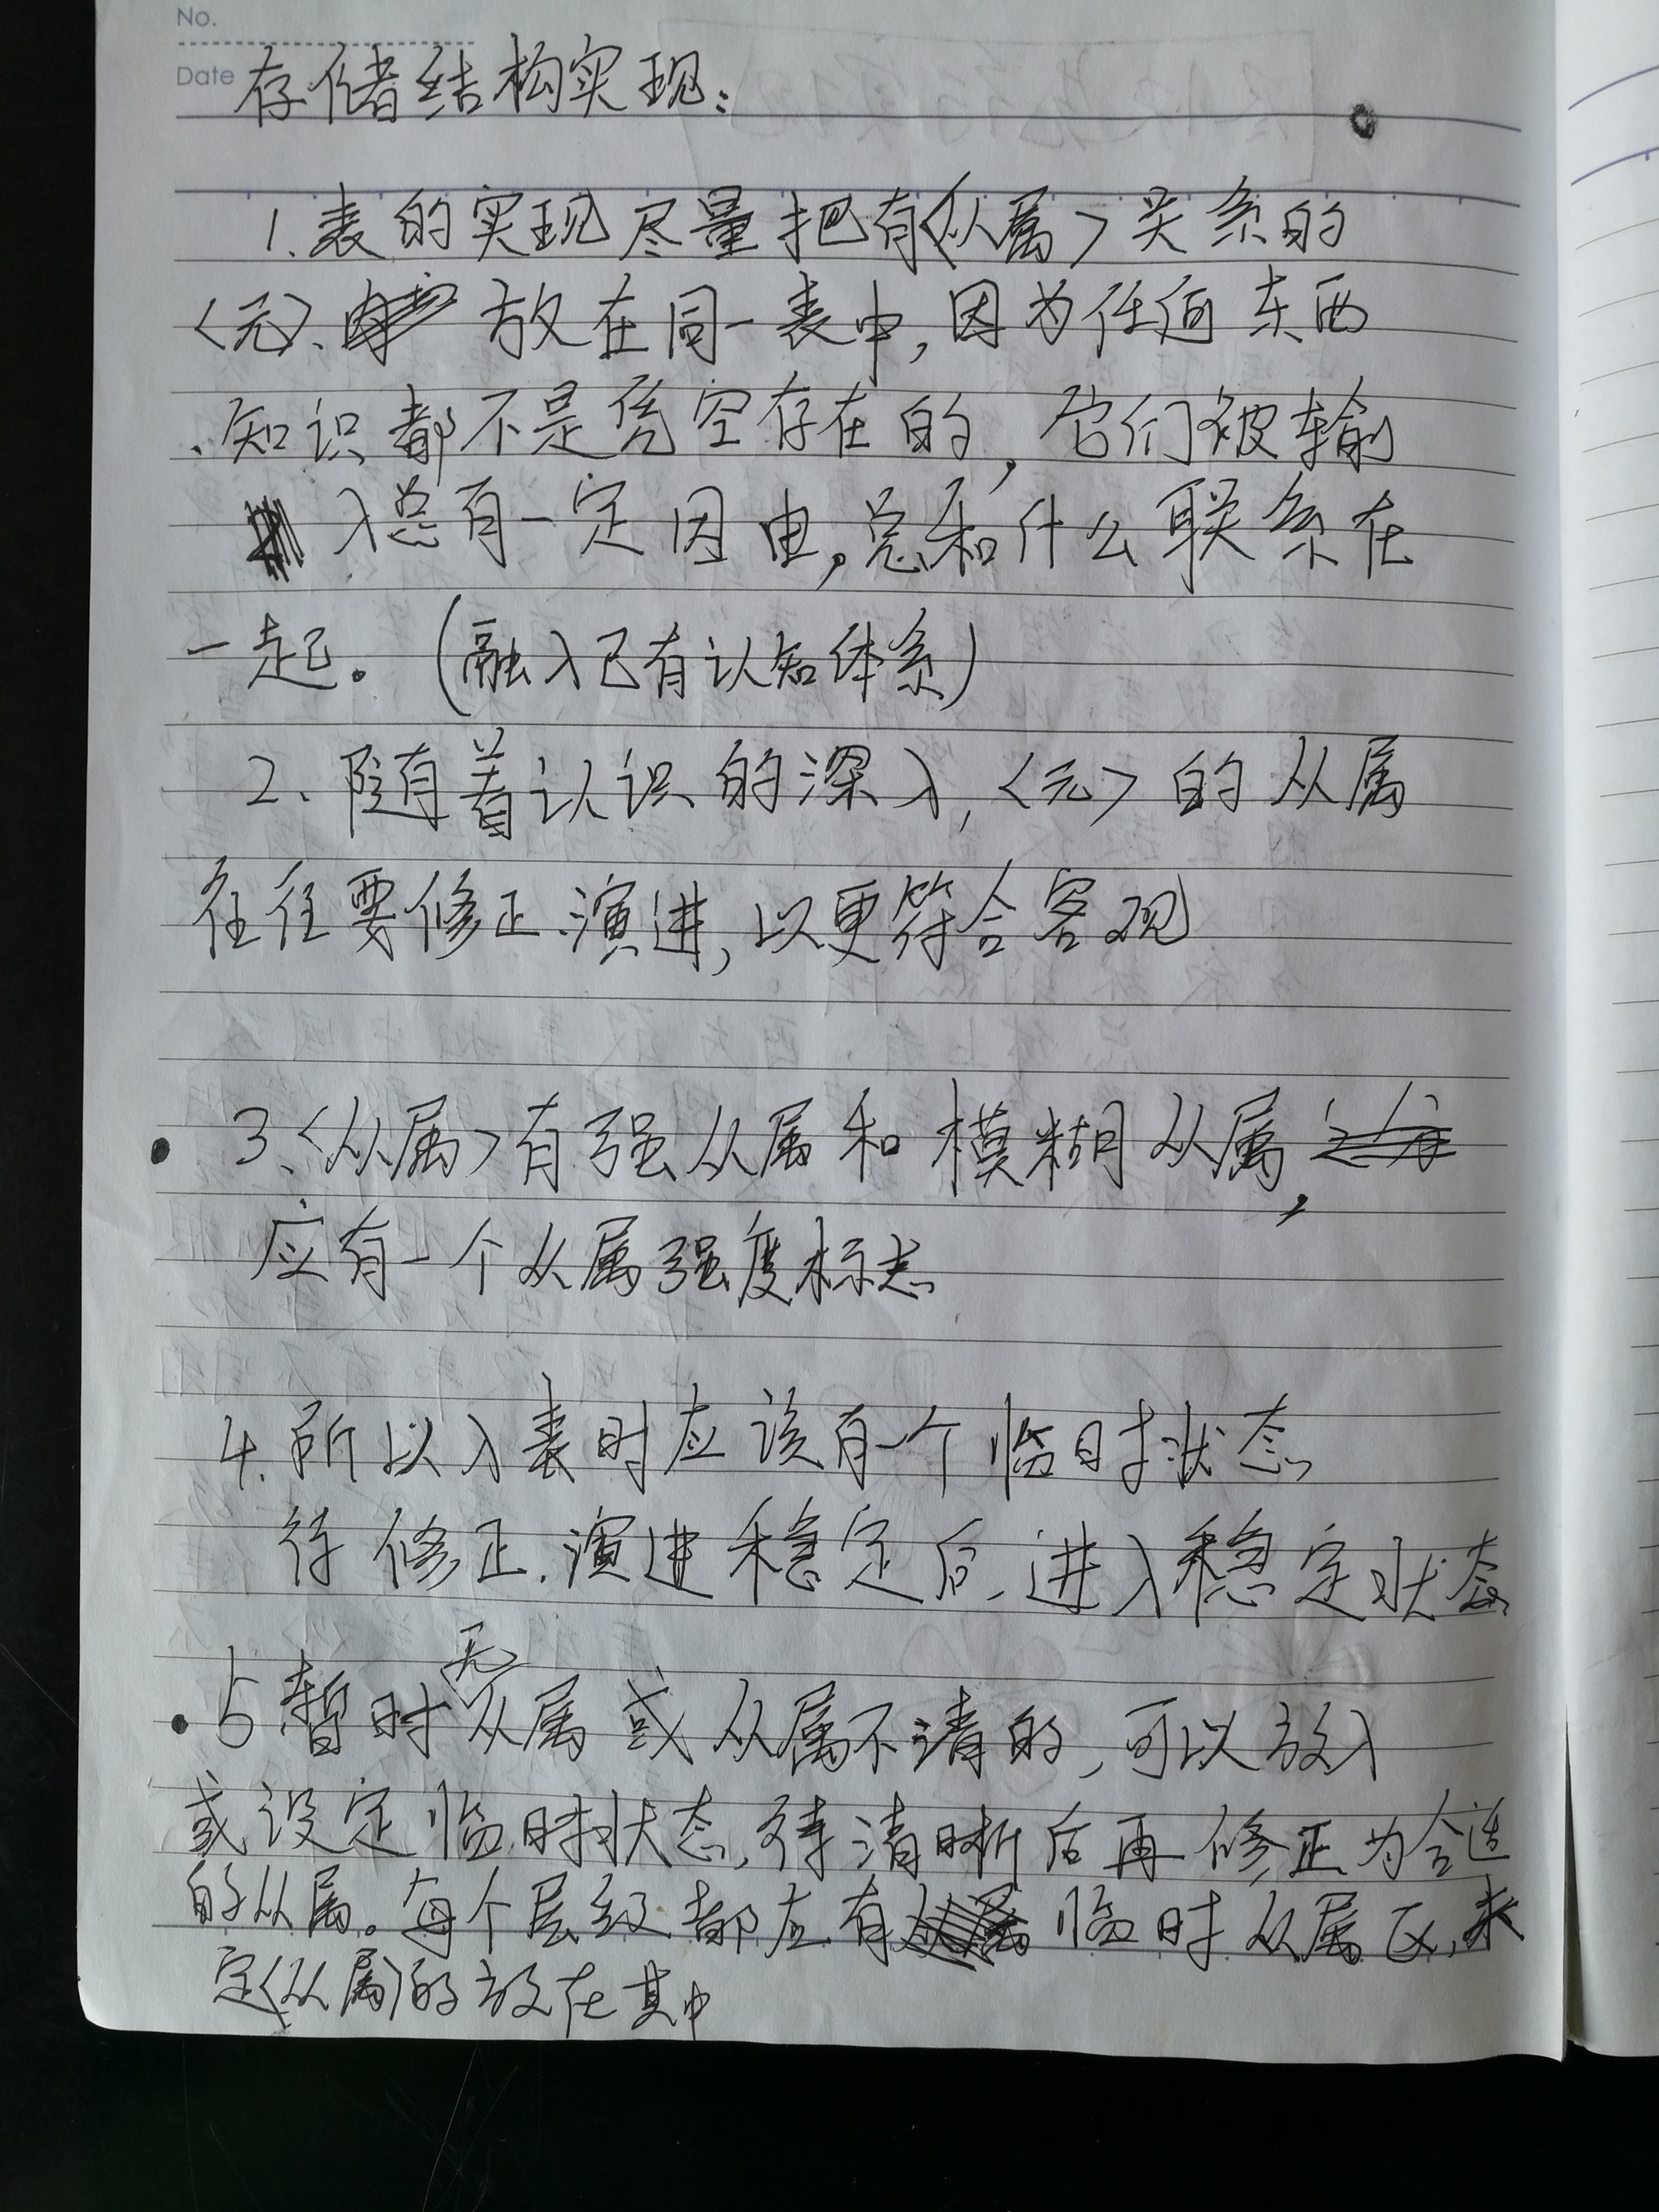 No.
Date
存储结构实现:
1.表的实现尽量把有<从属>关系的
<元>、放在同一表中,因为任何东西
、知识都不是凭空存在的,它们被输
入总有一定因由,总和什么联系在
一起。(融入已有认知体系)
2、随着认识的深入,<元>的从属
往往要修正.演进,以更符合客观
3、<从属>有强从属和模糊从属,
应有一个从属强度标志
4.所以入表时应该有一个临时状态
待修正.演进稳定后.进入稳定状态
5暂时无从属或从属不清的,可以放入
或设定临时状态,待清晰后再修正为合适
的从属。每个层级都应有临时从属区,未
定<从属>的放在其中